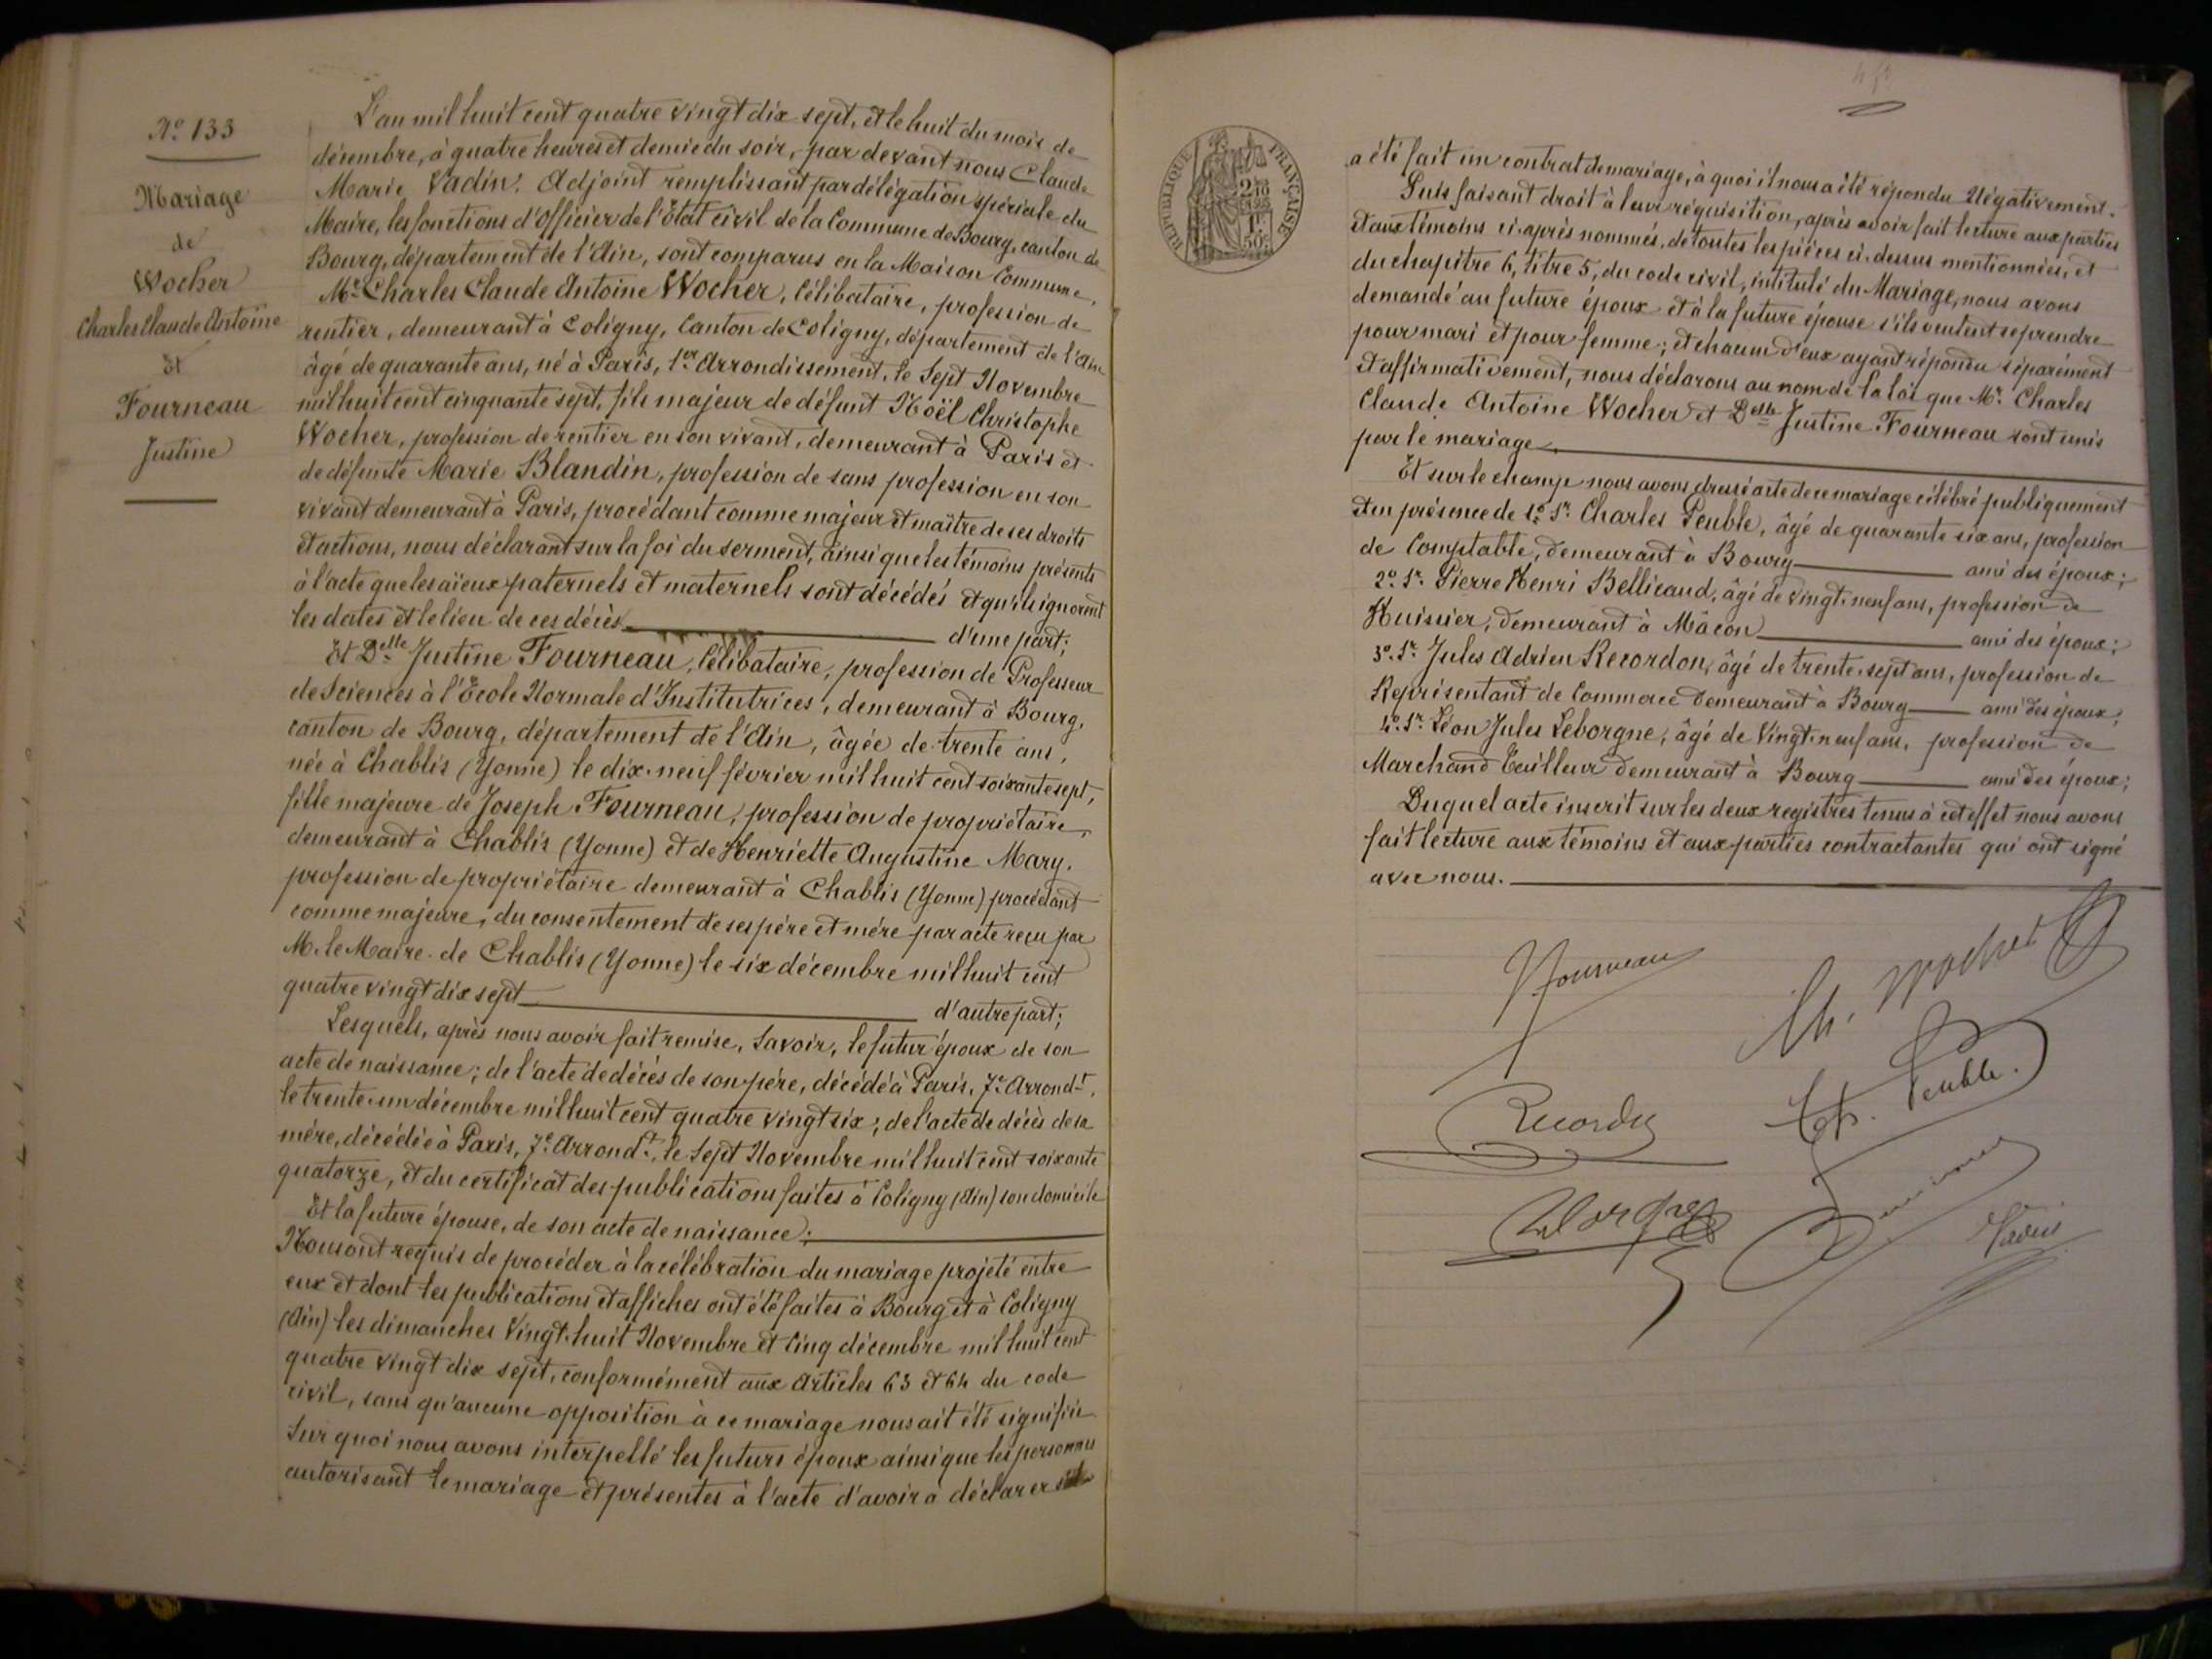 Nº 133
Mariage
de
Wocher
Charles Claude Antoine
Et
Fourneau
Justine
L'an mil huit cent quatre vingt dix sept, et le huit du mois de
décembre, à quatre heures et demie du soir, par devant nous Claude
Marie Vadin, Adjoint remplissant par délégation spéciale du
Maire, les fonctions d'Officier de l'Etat civil de la Commune de Bourg, canton de
Bourg, département de l'Ain, sont comparus en la Maison Commune,
Mr. Charles Claude Antoine Wocher, célibataire, profession de
rentier, demeurant à Coligny, Canton de Coligny, département de l'Ain
âgé de quarante ans, né à Paris, 1er Arrondissement, le Sept Novembre
mil huit cent cinquante sept, fils majeur de défunt Noël Christophe
Wocher, profession de rentier en son vivant, demeurant à Paris et
de défunte Marie Blandin, profession de sans profession en son
vivant demeurant à Paris, procédant comme majeur et maître de ses droits
et actions, nous déclarant sur la foi du serment, ainsi que les témoins présents
à l'acte que les aïeux paternels et maternels sont décédés et qu'ils ignorent
les dates et le lieu de ces décès d'une part;
Et Delle Justine Fourneau, célibataire, profession de Professeur
de Sciences à l'Ecole Normale d'Institutrices, demeurant à Bourg,
canton de Bourg, département de l'Ain, âgée de trente ans,
née à Chablis (Yonne) le dix-neuf février mil huit cent soixante sept,
fille majeure de Joseph Fourneau, profession de propriétaire,
demeurant à Chablis (Yonne) et de Henriette Augustine Mary,
profession de propriétaire demeurant à Chablis (Yonne) procédant
comme majeure, du consentement de ses père et mère par acte reçu par
M. le Maire de Chablis (Yonne) le six décembre mil huit cent
quatre vingt dix sept d'autre part;
Lesquels, après nous avoir fait remise, Savoir, le futur époux de son
acte de naissance; de l'acte de décès de son père, décédé à Paris, 7e Arrondt.
le trente-un décembre mil huit cent quatre vingt six; de l'acte de décès de sa
mère, décédée à Paris, 7e Arrondt, le Sept Novembre mil huit cent soixante
quatorze, et du certificat des publications faites à Coligny (Ain) son domicile
Et la future épouse, de son acte de naissance;
Nous ont requis de procéder à la célébration du mariage projeté entre
eux et dont les publications et affiches ont été faites à Bourg et à Coligny
(Ain) les dimanches Vingt-huit Novembre et Cinq décembre mil huit cent
quatre vingt dix sept, conformément aux Articles 63 et 64 du code
civil, sans qu'aucune opposition à ce mariage nous ait été signifiée
Sur quoi nous avons interpellé les futurs époux ainsi que les personnes
autorisant le mariage et présentes à l'acte d'avoir à déclarer s'il
REPUBLIQUE FRANÇAISE
a été fait un contrat de mariage, à quoi il nous a été répondu Négativement.
Puis faisant droit à leur réquisition, après avoir fait lecture aux parties
et aux témoins ci-après nommés, de toutes les pièces ci-dessus mentionnées, et
du chapitre 6, titre 5, du code civil, intitulé du Mariage, nous avons
demandé au future époux et à la future épouse s'ils veulent se prendre
pour mari et pour femme; et chacun d'eux ayant répondu séparément
et affirmativement, nous déclarons au nom de la loi que Mr. Charles
Claude Antoine Wocher et Delle Justine Fourneau sont unis
par le mariage
Et sur le champ nous avons dressé acte de ce mariage célébré publiquement
et en présence de 1º Sr. Charles Peuble, âgé de quarante six ans, profession
de Comptable, demeurant à Bourg ami des époux;
2º Sr. Pierre Henri Bellicaud, âgé de vingt-neuf ans, profession de
Huissier, demeurant à Mâcon ami des époux;
3º Sr. Jules Adrien Recordon, âgé de trente-sept ans, profession de
Représentant de Commerce demeurant à Bourg ami des époux;
4º Sr. Léon Jules Leborgne, âgé de Vingt-neuf ans, profession de
Marchand Tailleur demeurant à Bourg ami des époux;
Duquel acte inscrit sur les deux registres tenus à cet effet nous avons
fait lecture aux témoins et aux parties contractantes qui ont signé
avec nous.
J Fourneau
Ch. Wocher
Recordon
Ch. Peuble.
Vadin